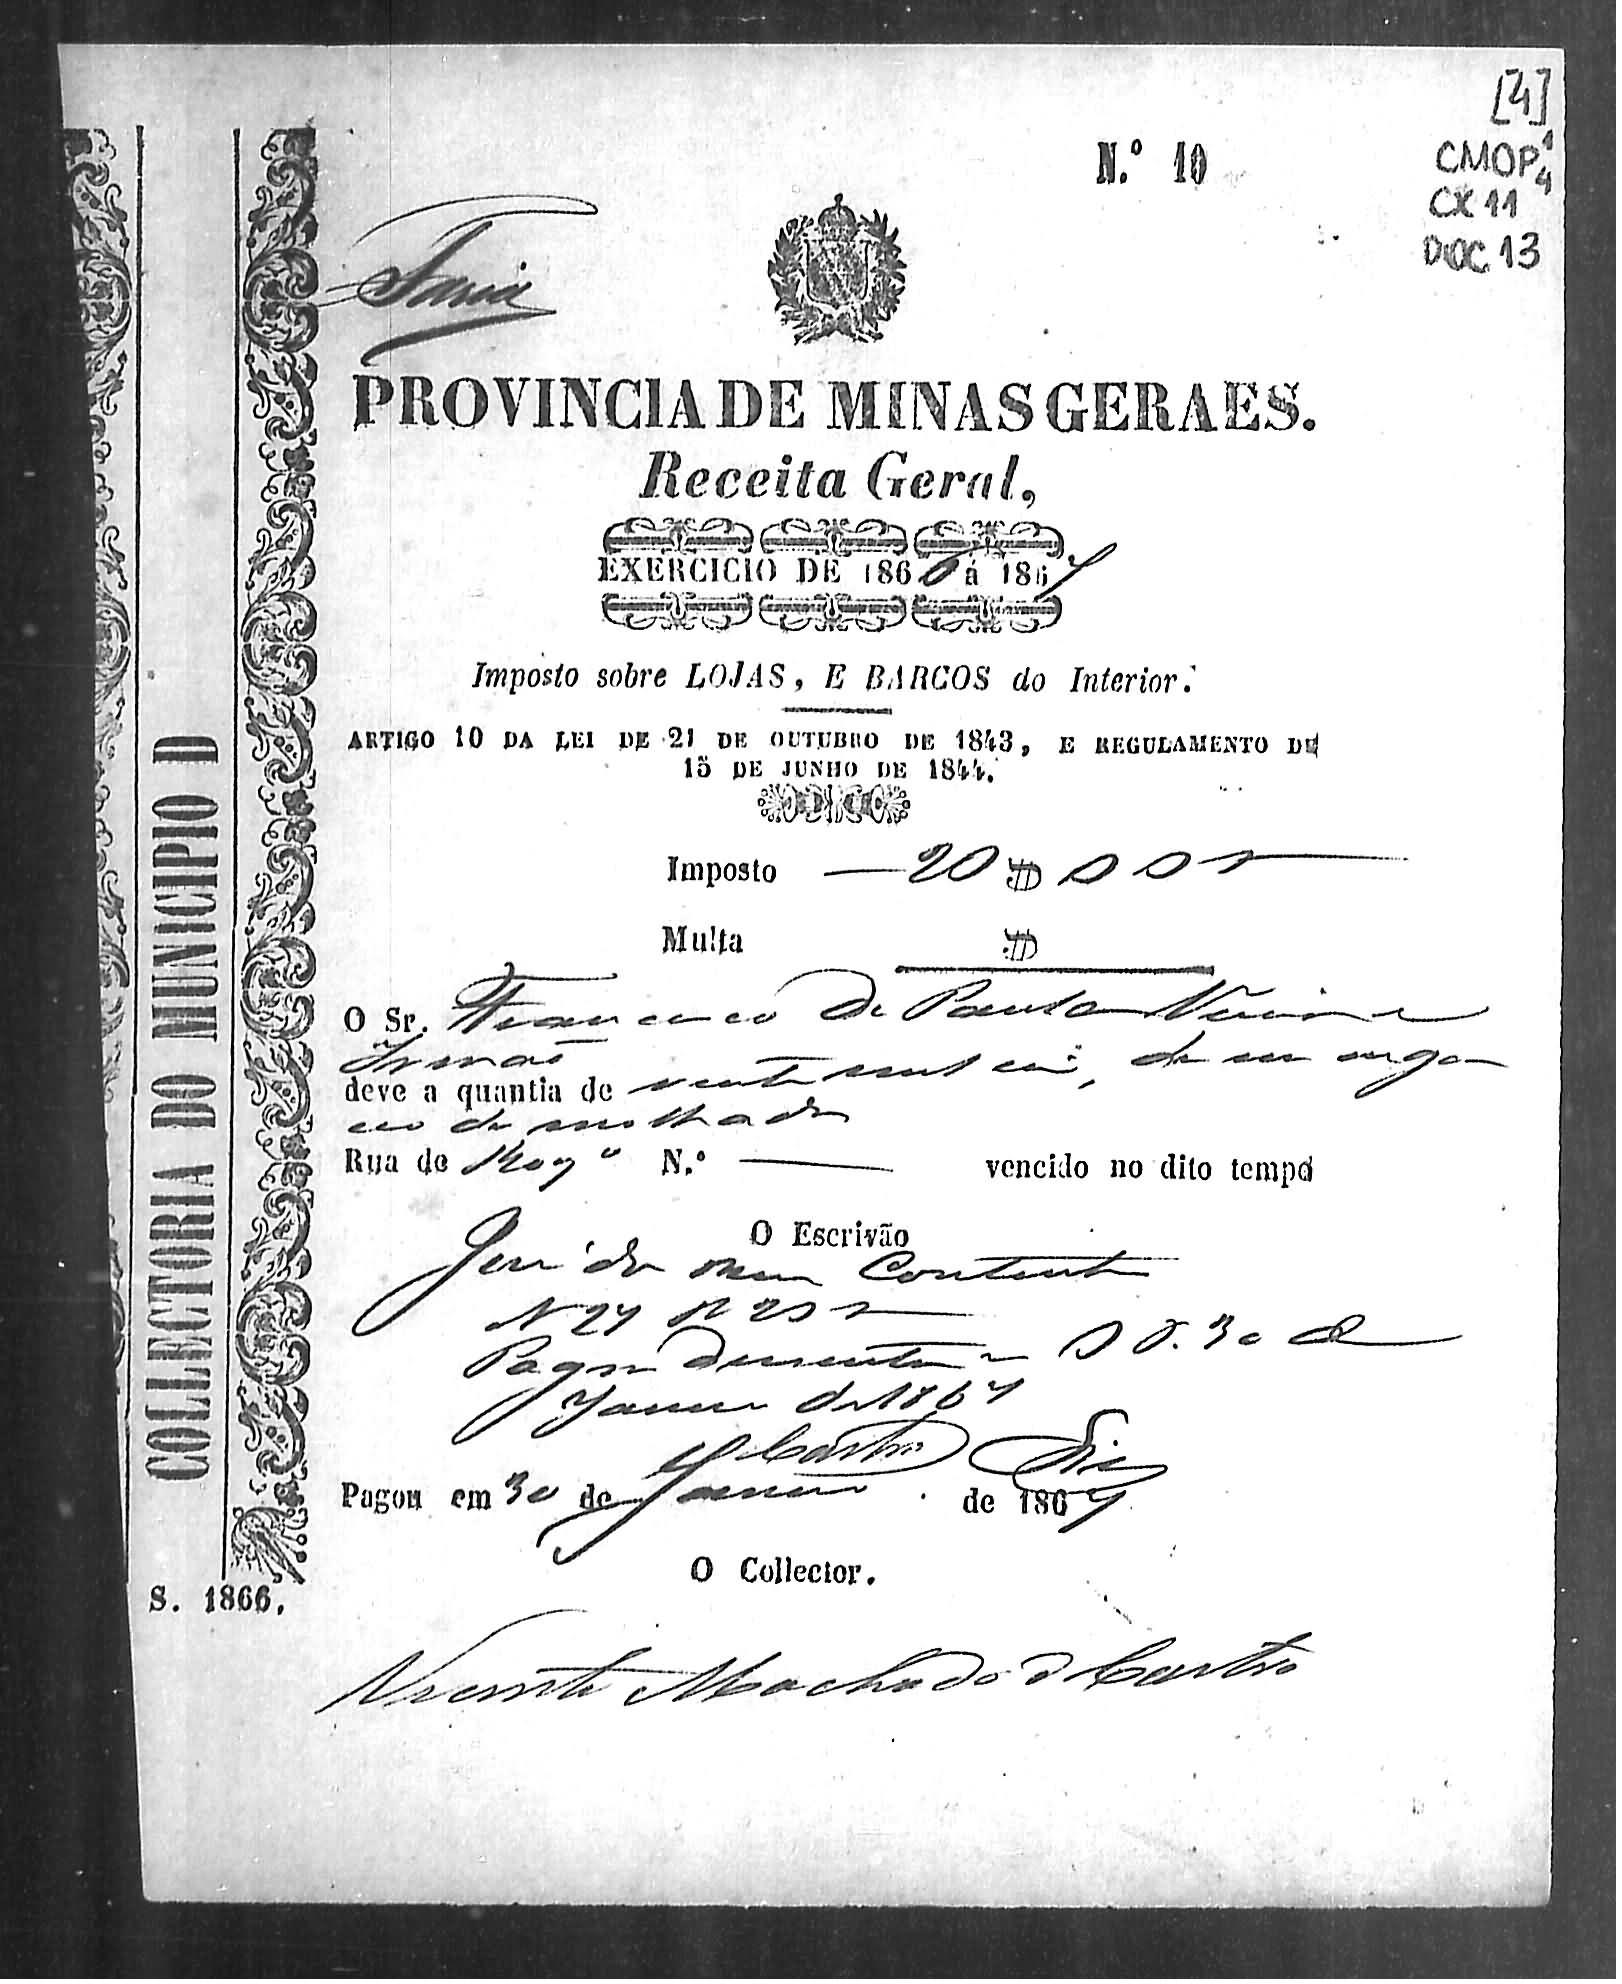 [4]
CMOP 1/4
CX 11
DOC 13
N.º 10
Faria
PROVINCIA DE MINAS GERAES.
Receita Geral,
EXERCICIO DE 1866 á 1867
Imposto sobre LOJAS, E BARCOS do Interior.
ARTIGO 10 DA LEI DE 21 DE OUTUBRO DE 1843, E REGULAMENTO DE
15 DE JUNHO DE 1844.
Imposto — 20 $ 000
Multa $
O Sr. Francisco de Paula
Irmão
deve a quantia de vinte mil reis, de
de molhados
Rua do N.º — vencido no dito tempo
O Escrivão
N 27
Pagou
Janeiro de 1867
Castro Dias
Pagou em 30 de Janeiro de 1867
O Collector.
Vicente Machado d Castro
COLLECTORIA DO MUNICIPIO D
S. 1866.